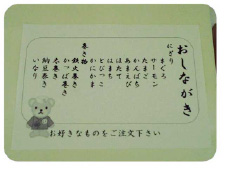 おしながき
にぎり
まぐろ
サーモン
たまご
かんぱち
あまえび
ほたて
はまち
とびっこ
かにかま
巻き物
鉄火巻き
かっぱ巻き
太巻き
納豆巻き
いなり
お好きなものをご注文下さい